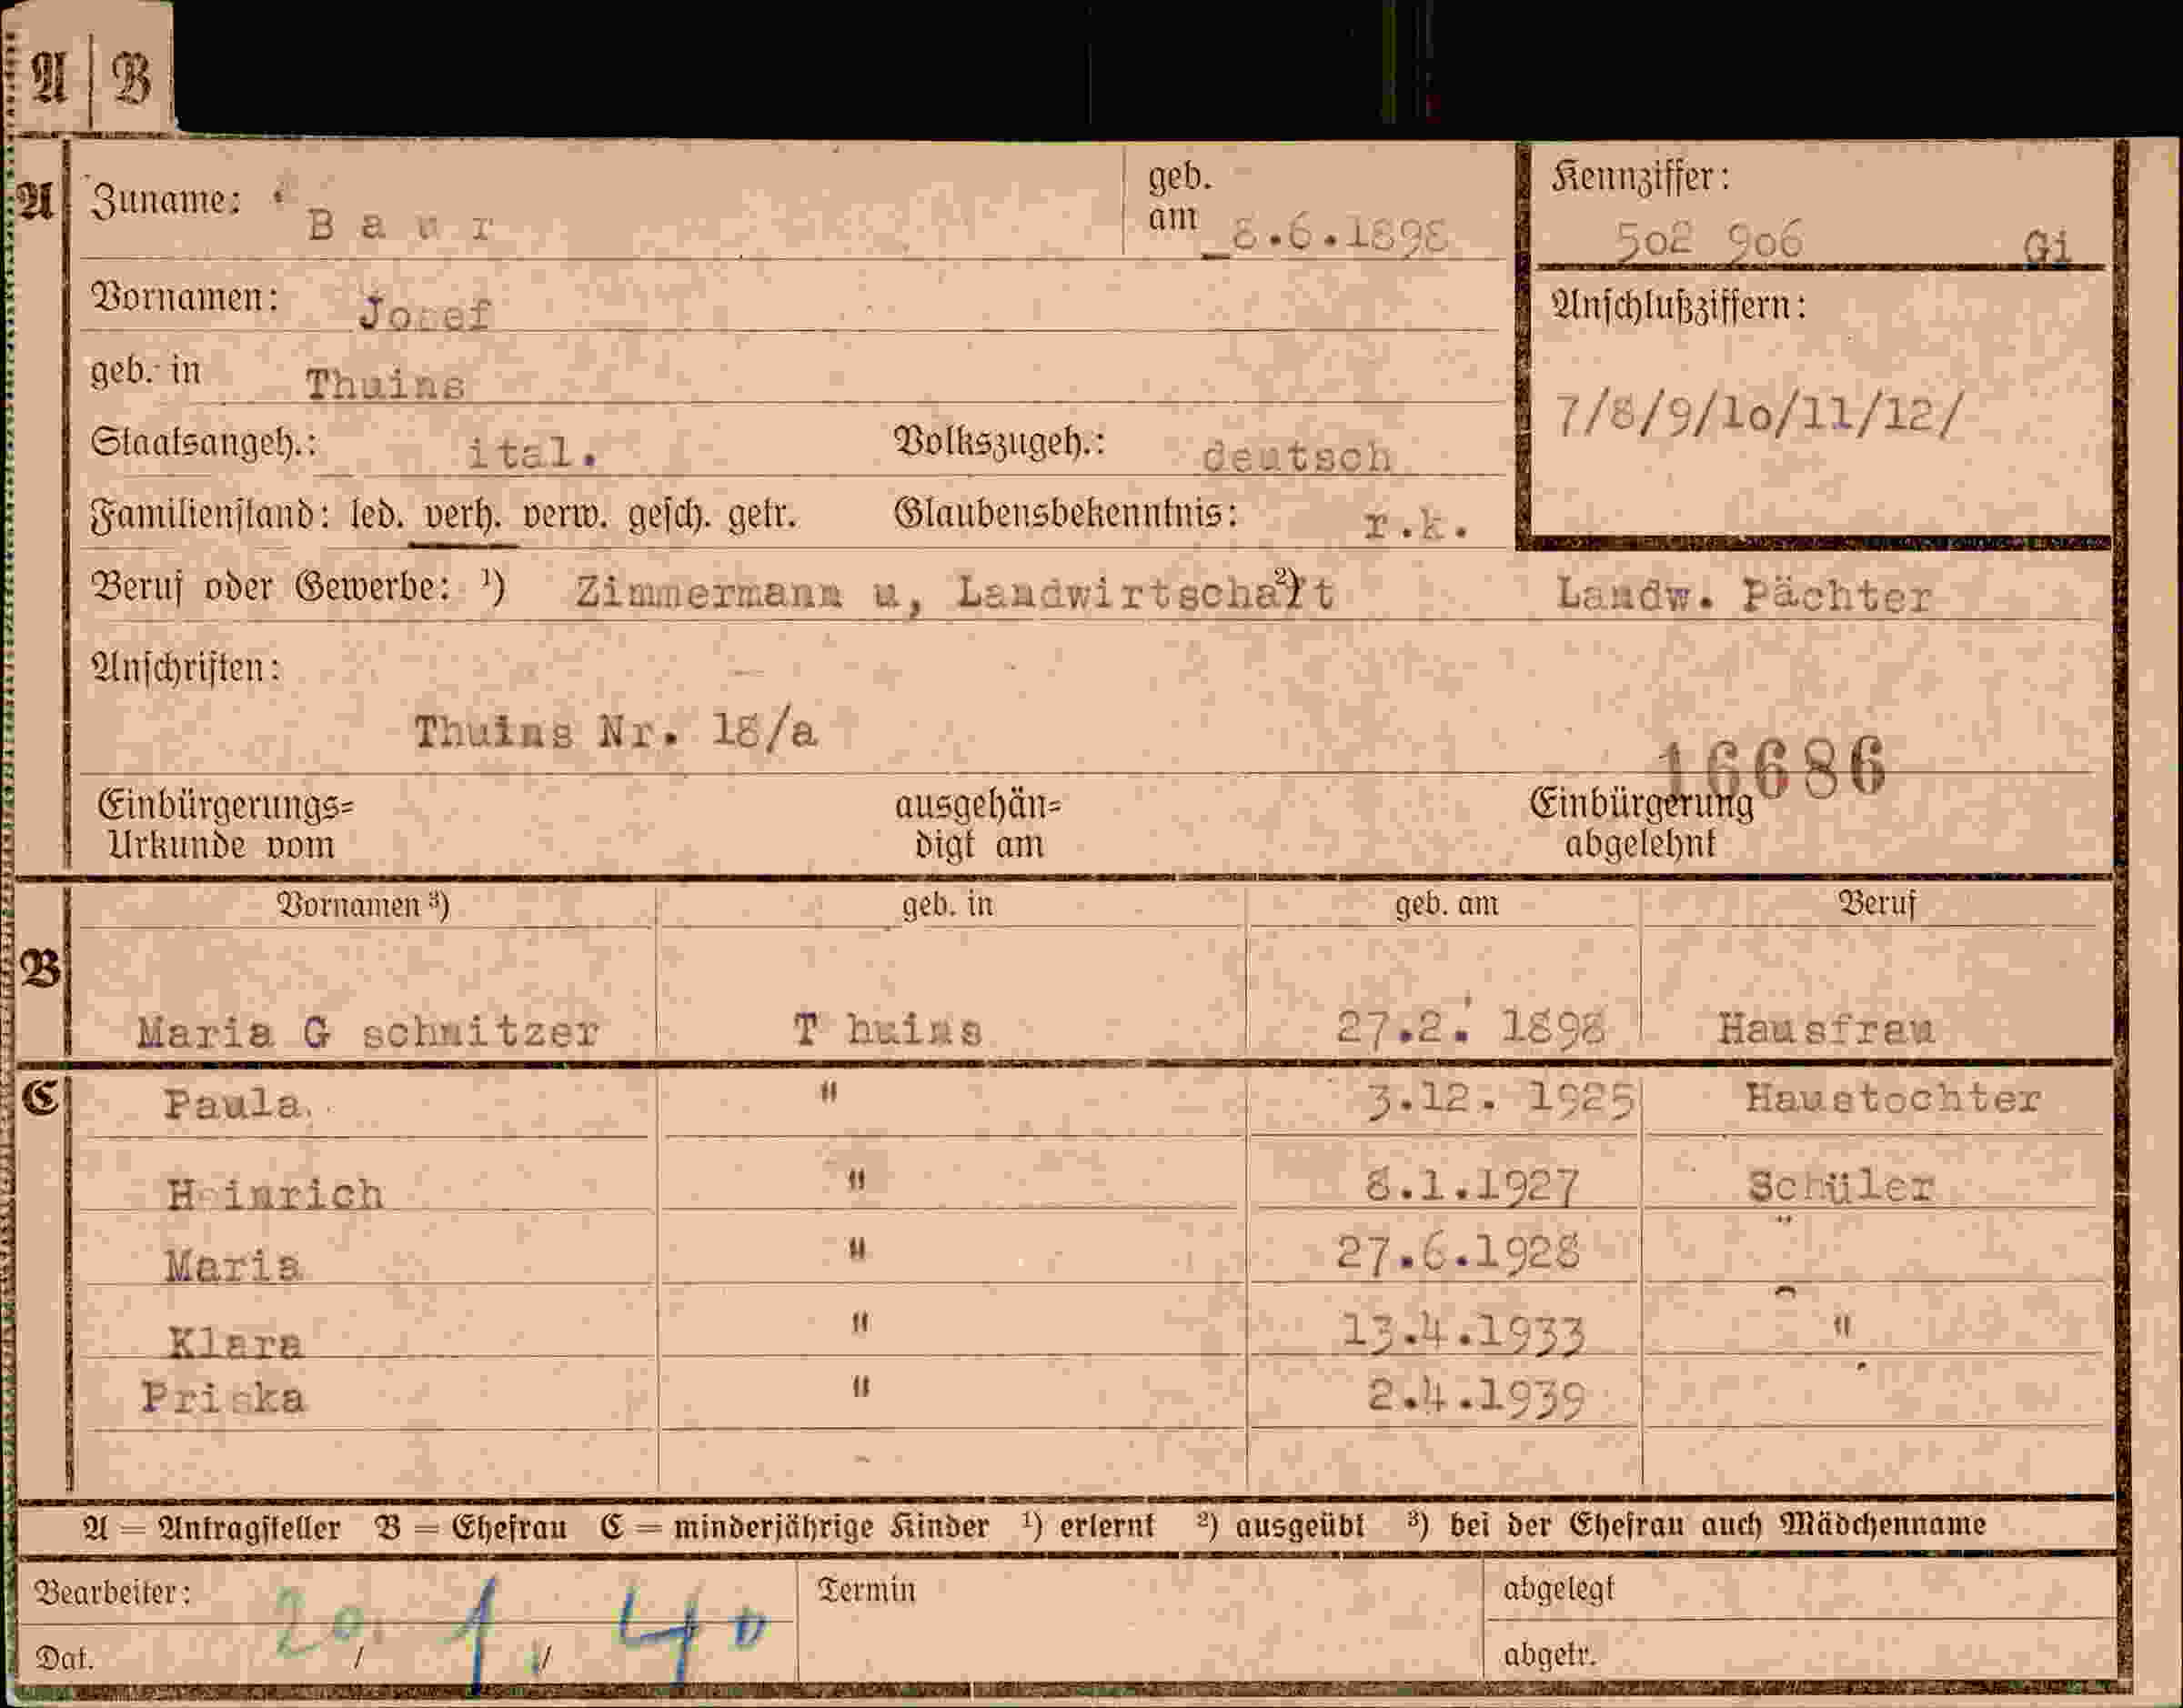 A | B
A Zuname: Baur geb. am 8.6.1898 Kennziffer: 502 906 Gi
Vornamen: Josef Anschlußziffern:
geb. in Thuins 7/8/9/10/11/12/
Staatsangeh.: ital. Volkszugeh.: deutsch
Familienstand: led. verh. verw. gesch. getr. Glaubensbekenntnis: r.k.
Beruf oder Gewerbe: ¹) Zimmermann u, Landwirtschaft ²) Landw. Pächter
Anschriften:
Thuins Nr. 18/a
16686
Einbürgerungs= ausgehän= Einbürgerung
Urkunde vom digt am abgelehnt
Vornamen ³) geb. in geb. am Beruf
B
Maria G schnitzer T huins 27.2. 1898 Hausfrau
C Paula " 3.12. 1925 Haustochter
Heinrich " 8.1.1927 Schüler
Maria " 27.6.1928 "
Klara " 13.4.1933 "
Priska " 2.4.1939
A = Antragsteller B = Ehefrau C = minderjährige Kinder ¹) erlernt ²) ausgeübt ³) bei der Ehefrau auch Mädchenname
Bearbeiter: Termin abgelegt
Dat. 20 / 1 / 40 abgetr.